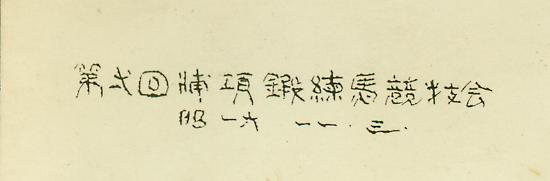 第弍回浦項鍛練馬競技会
昭一六 一一.三.